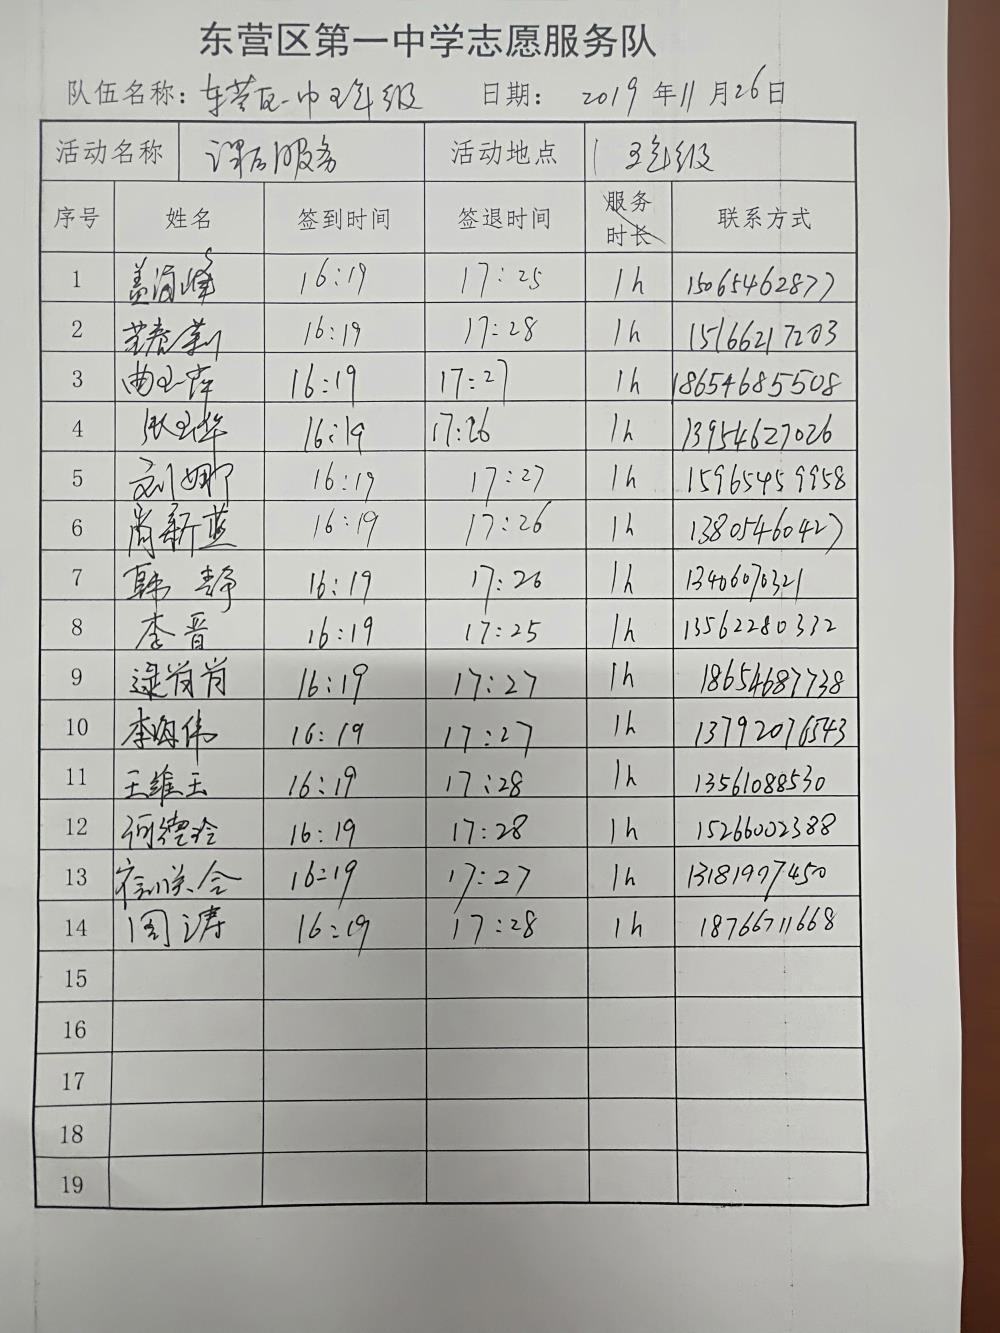 东营区第一中学志愿服务队
队伍名称：东营区一中五年级 日期： 2019 年 11 月 26 日
活动名称 课后服务 活动地点 五年级
序号 姓名 签到时间 签退时间 服务时长 联系方式
1 盖海峰 16:19 17:25 1h 15065462877
2 16:19 17:28 1h 15166217203
3 曲玉萍 16:19 17:27 1h 18654685508
4 张玉华 16:19 17:26 1h 13954627026
5 刘娜 16:19 17:27 1h 15965459958
6 尚新蓝 16:19 17:26 1h 13805460427
7 韩静 16:19 17:26 1h 13406070321
8 李晋 16:19 17:25 1h 13562280332
9 逯肖肖 16:19 17:27 1h 18654687738
10 李海伟 16:19 17:27 1h 13792076543
11 王维玉 16:19 17:28 1h 13561088530
12 何德玲 16:19 17:28 1h 15266002388
13 16:19 17:27 1h 13181997450
14 周涛 16:19 17:28 1h 18766711668
15
16
17
18
19